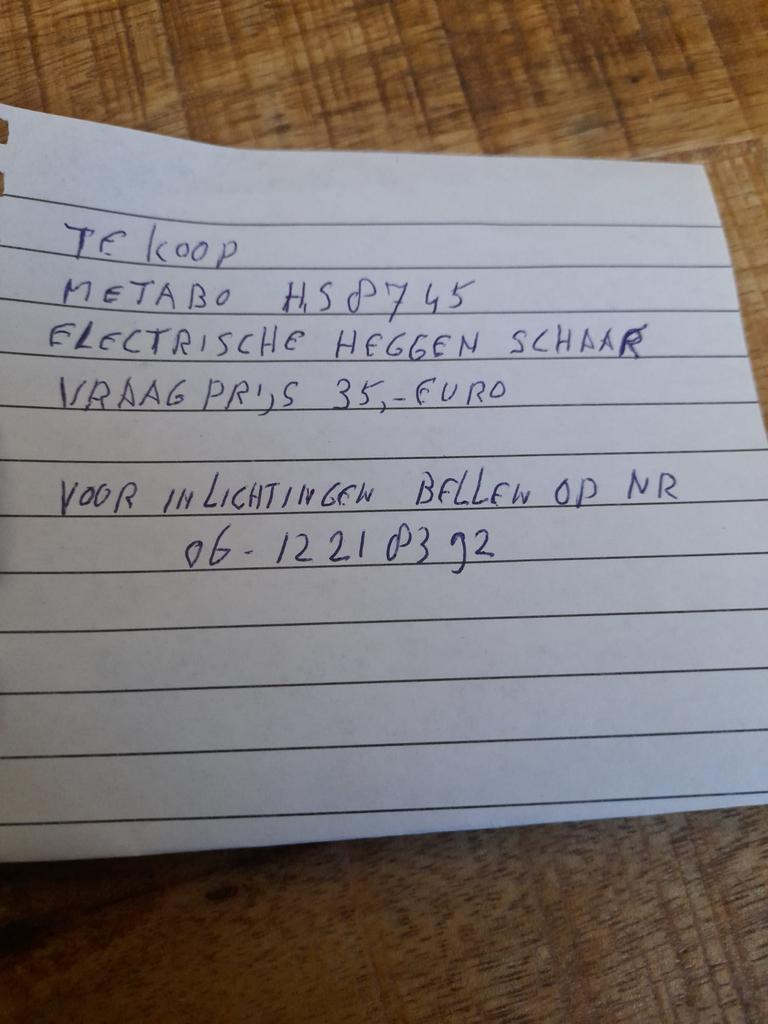 TE KOOP
METABO HS 8745
ELECTRISCHE HEGGEN SCHAAR
VRAAG PRIJS 35,- EURO
VOOR INLICHTINGEN BELLEN OP NR
06-12218392